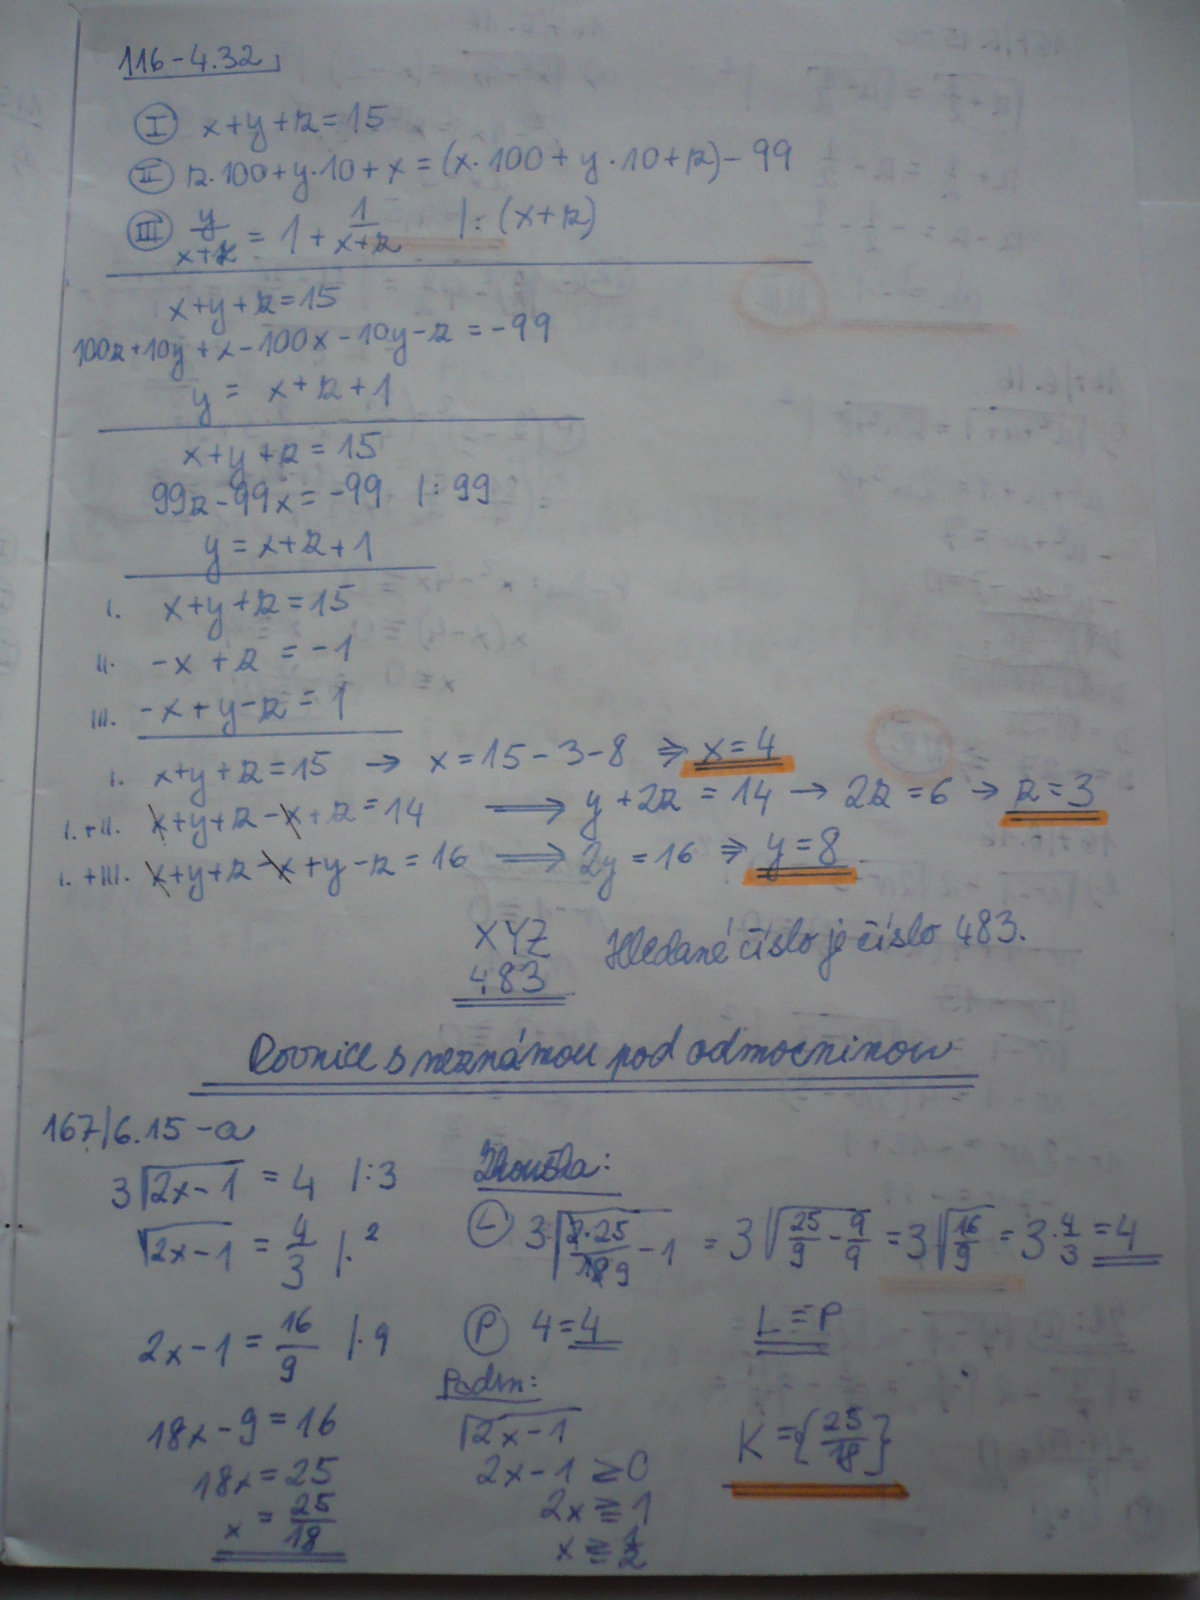 116-4.32
I x+y+z=15
II z·100+y·10+x=(x·100+y·10+z)-99
III y/(x+z) = 1 + 1/(x+z) |·(x+z)
x+y+z=15
100z+10y+x-100x-10y-z=-99
y = x+z+1
x+y+z=15
99z-99x=-99 |:99
y=x+z+1
I. x+y+z=15
II. -x+z=-1
III. -x+y-z=1
I. x+y+z=15 → x=15-3-8 ⇒ x=4
I.+II. x+y+z-x+z=14 ⟹ y+2z=14 → 2z=6 → z=3
I.+III. x+y+z-x+y-z=16 ⟹ 2y=16 ⇒ y=8
XYZ
483
Hledané číslo je číslo 483.
Rovnice s neznámou pod odmocninou
167/6.15-a
3√(2x-1) = 4 |:3
√(2x-1) = 4/3 |·²
2x-1 = 16/9 |·9
18x-9=16
18x=25
x = 25/18
Zkouška:
L 3√(2·25/18 - 1) = 3√(25/9 - 9/9) = 3√(16/9) = 3·4/3 = 4
P 4=4 L=P
Podm:
√(2x-1)
2x-1≥0
2x≥1
x≥1/2
K={25/18}